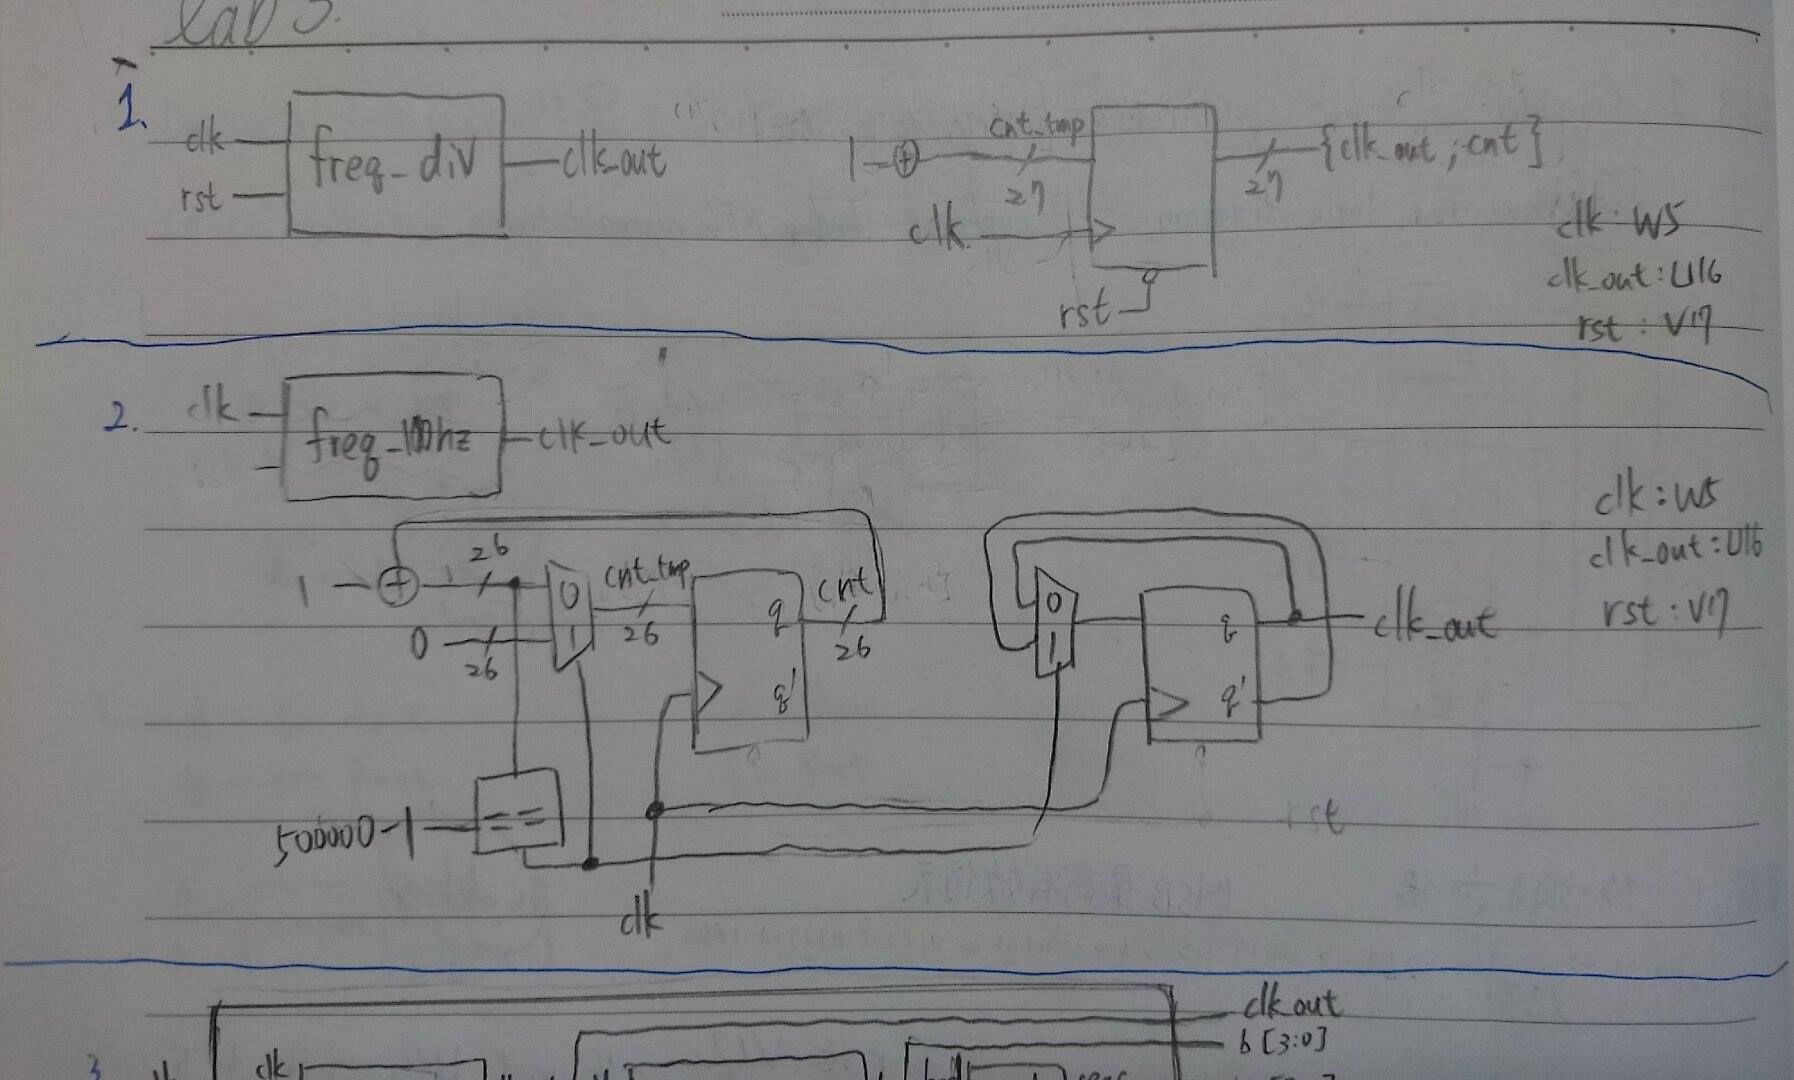 lab 3.
1.
clk
rst
freq_div
clk_out
1
cnt_tmp
27
clk
rst
27
{clk_out, cnt}
clk: W5
clk_out: U16
rst: V17
2.
clk
freq_100hz
clk_out
clk: W5
clk_out: U16
rst: V17
1
26
0
26
0
1
cnt_tmp
26
q
q'
cnt
26
0
1
q
q'
clk_out
500000-1
==
clk
rst
3
clk_out
b[3:0]
clk